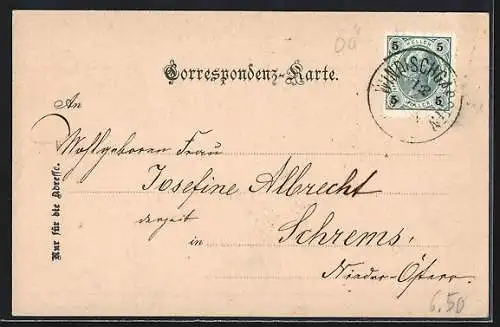 OÖ
5 HELLER 5
5 HELLER 5
WINDISCHGARSTEN
Correspondenz-Karte.
An
Wohlgeboren Frau
Josefine Albrecht
derzeit
in Schrems,
Nieder-Österr.
Nur für die Adresse.
6.50